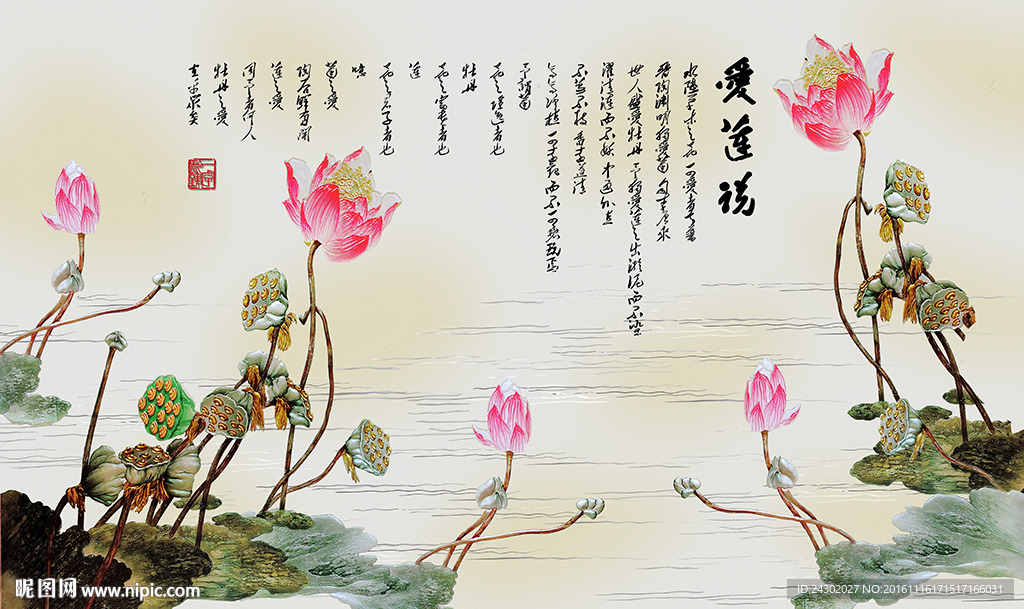 愛蓮説
水陸草木之花 可愛者甚蕃
晋陶渊明独愛菊 自李唐來
世人盛愛牡丹 予独愛蓮之出淤泥而不染
濯清漣而不妖 中通外直
不蔓不枝 香遠益清
亭亭净植 可遠觀而不可亵玩焉
予謂菊
花之隱逸者也
牡丹
花之富貴者也
蓮
花之君子者也
噫
菊之愛
陶后鮮有聞
蓮之愛
同予者何人
牡丹之愛
宜乎衆矣
昵图网 www.nipic.com
ID:24302027 NO:20161116171517166031